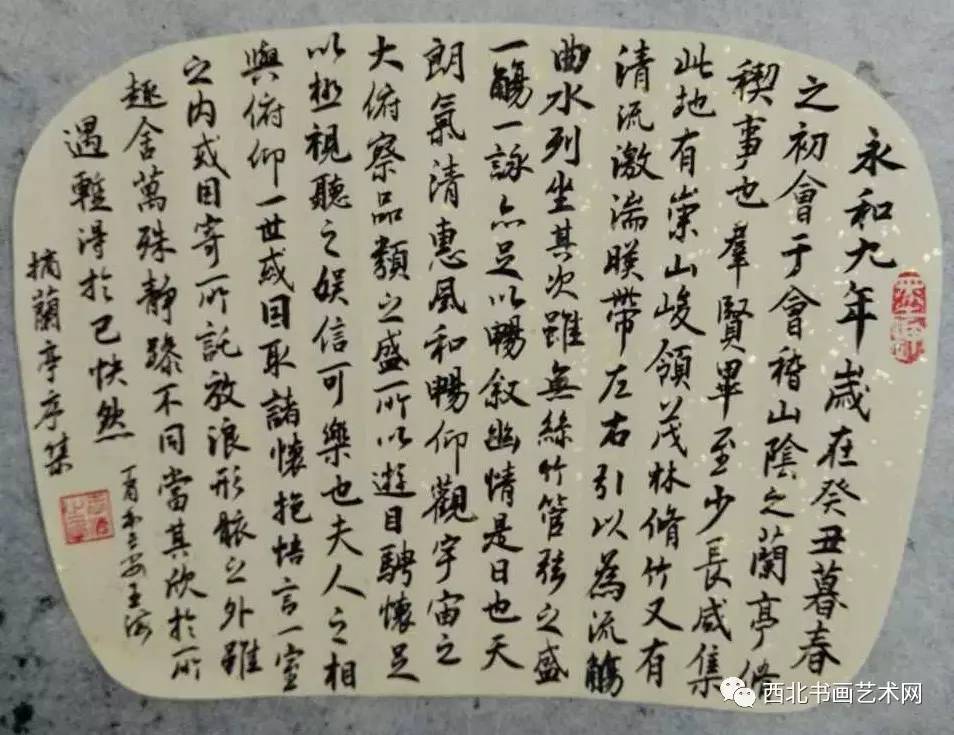 永和九年歲在癸丑暮春
之初會于會稽山陰之蘭亭脩
稧事也羣賢畢至少長咸集
此地有崇山峻領茂林脩竹又有
清流激湍暎帶左右引以為流觴
曲水列坐其次雖無絲竹管弦之盛
一觴一詠亦足以暢敘幽情是日也天
朗氣清惠風和暢仰觀宇宙之
大俯察品類之盛所以遊目騁懷足
以極視聽之娛信可樂也夫人之相
與俯仰一世或因取諸懷抱悟言一室
之內或因寄所託放浪形骸之外雖
趣舍萬殊靜躁不同當其欣於所
遇暫得於己快然
摘蘭亭序集
丁酉
西北书画艺术网